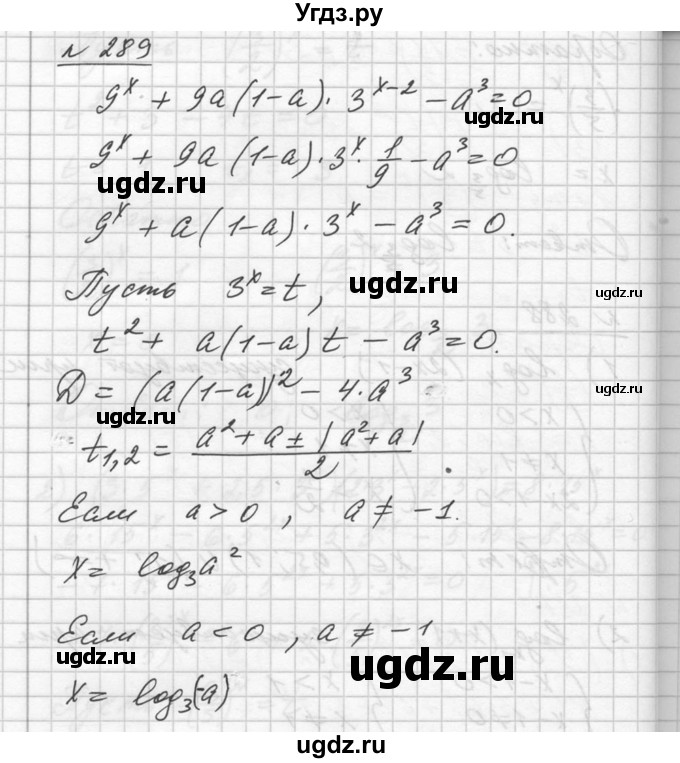 Угдз.ру
n 289
9^x + 9a(1-a)·3^{x-2} - a^3 = 0
ugdz.ru
9^x + 9a (1-a)·3^x·1/9 - a^3 = 0
ugdz.ru
ugdz.ru
9^x + a(1-a)·3^x - a^3 = 0.
Пусть 3^x = t,
ugdz.ru
ugdz.ru
t^2 + a(1-a)t - a^3 = 0.
Д = (a(1-a))^2 - 4·a^3
ugdz.ru
ugdz.ru
t_{1,2} = (a^2 + a ± |a^2 + a|)/2.
Если a > 0, a ≠ -1.
ugdz.ru
x = log_3 a^2
Если a < 0, a ≠ -1
ugdz.ru
ugdz.ru
x = log_3(-a)
ugdz.ru
ugdz.ru